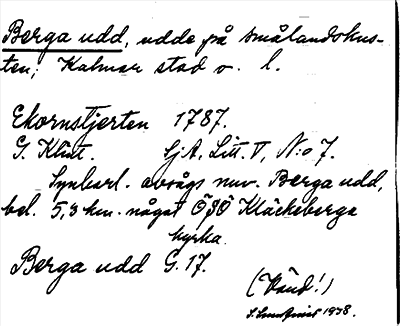 Berga udd, udde på smålandskus-
ten; Kalmar stad o. l.
Ekornstjerten 1787.
G. Klint. SjA, Litt. V, N:o 7.
Synbarl. avsågs nuv. Berga udd,
bel. 5,3 km. något ÖSÖ Kläckeberga
kyrka.
Berga udd G. 17.
(Vänd!)
S. Lundqvist 1938.